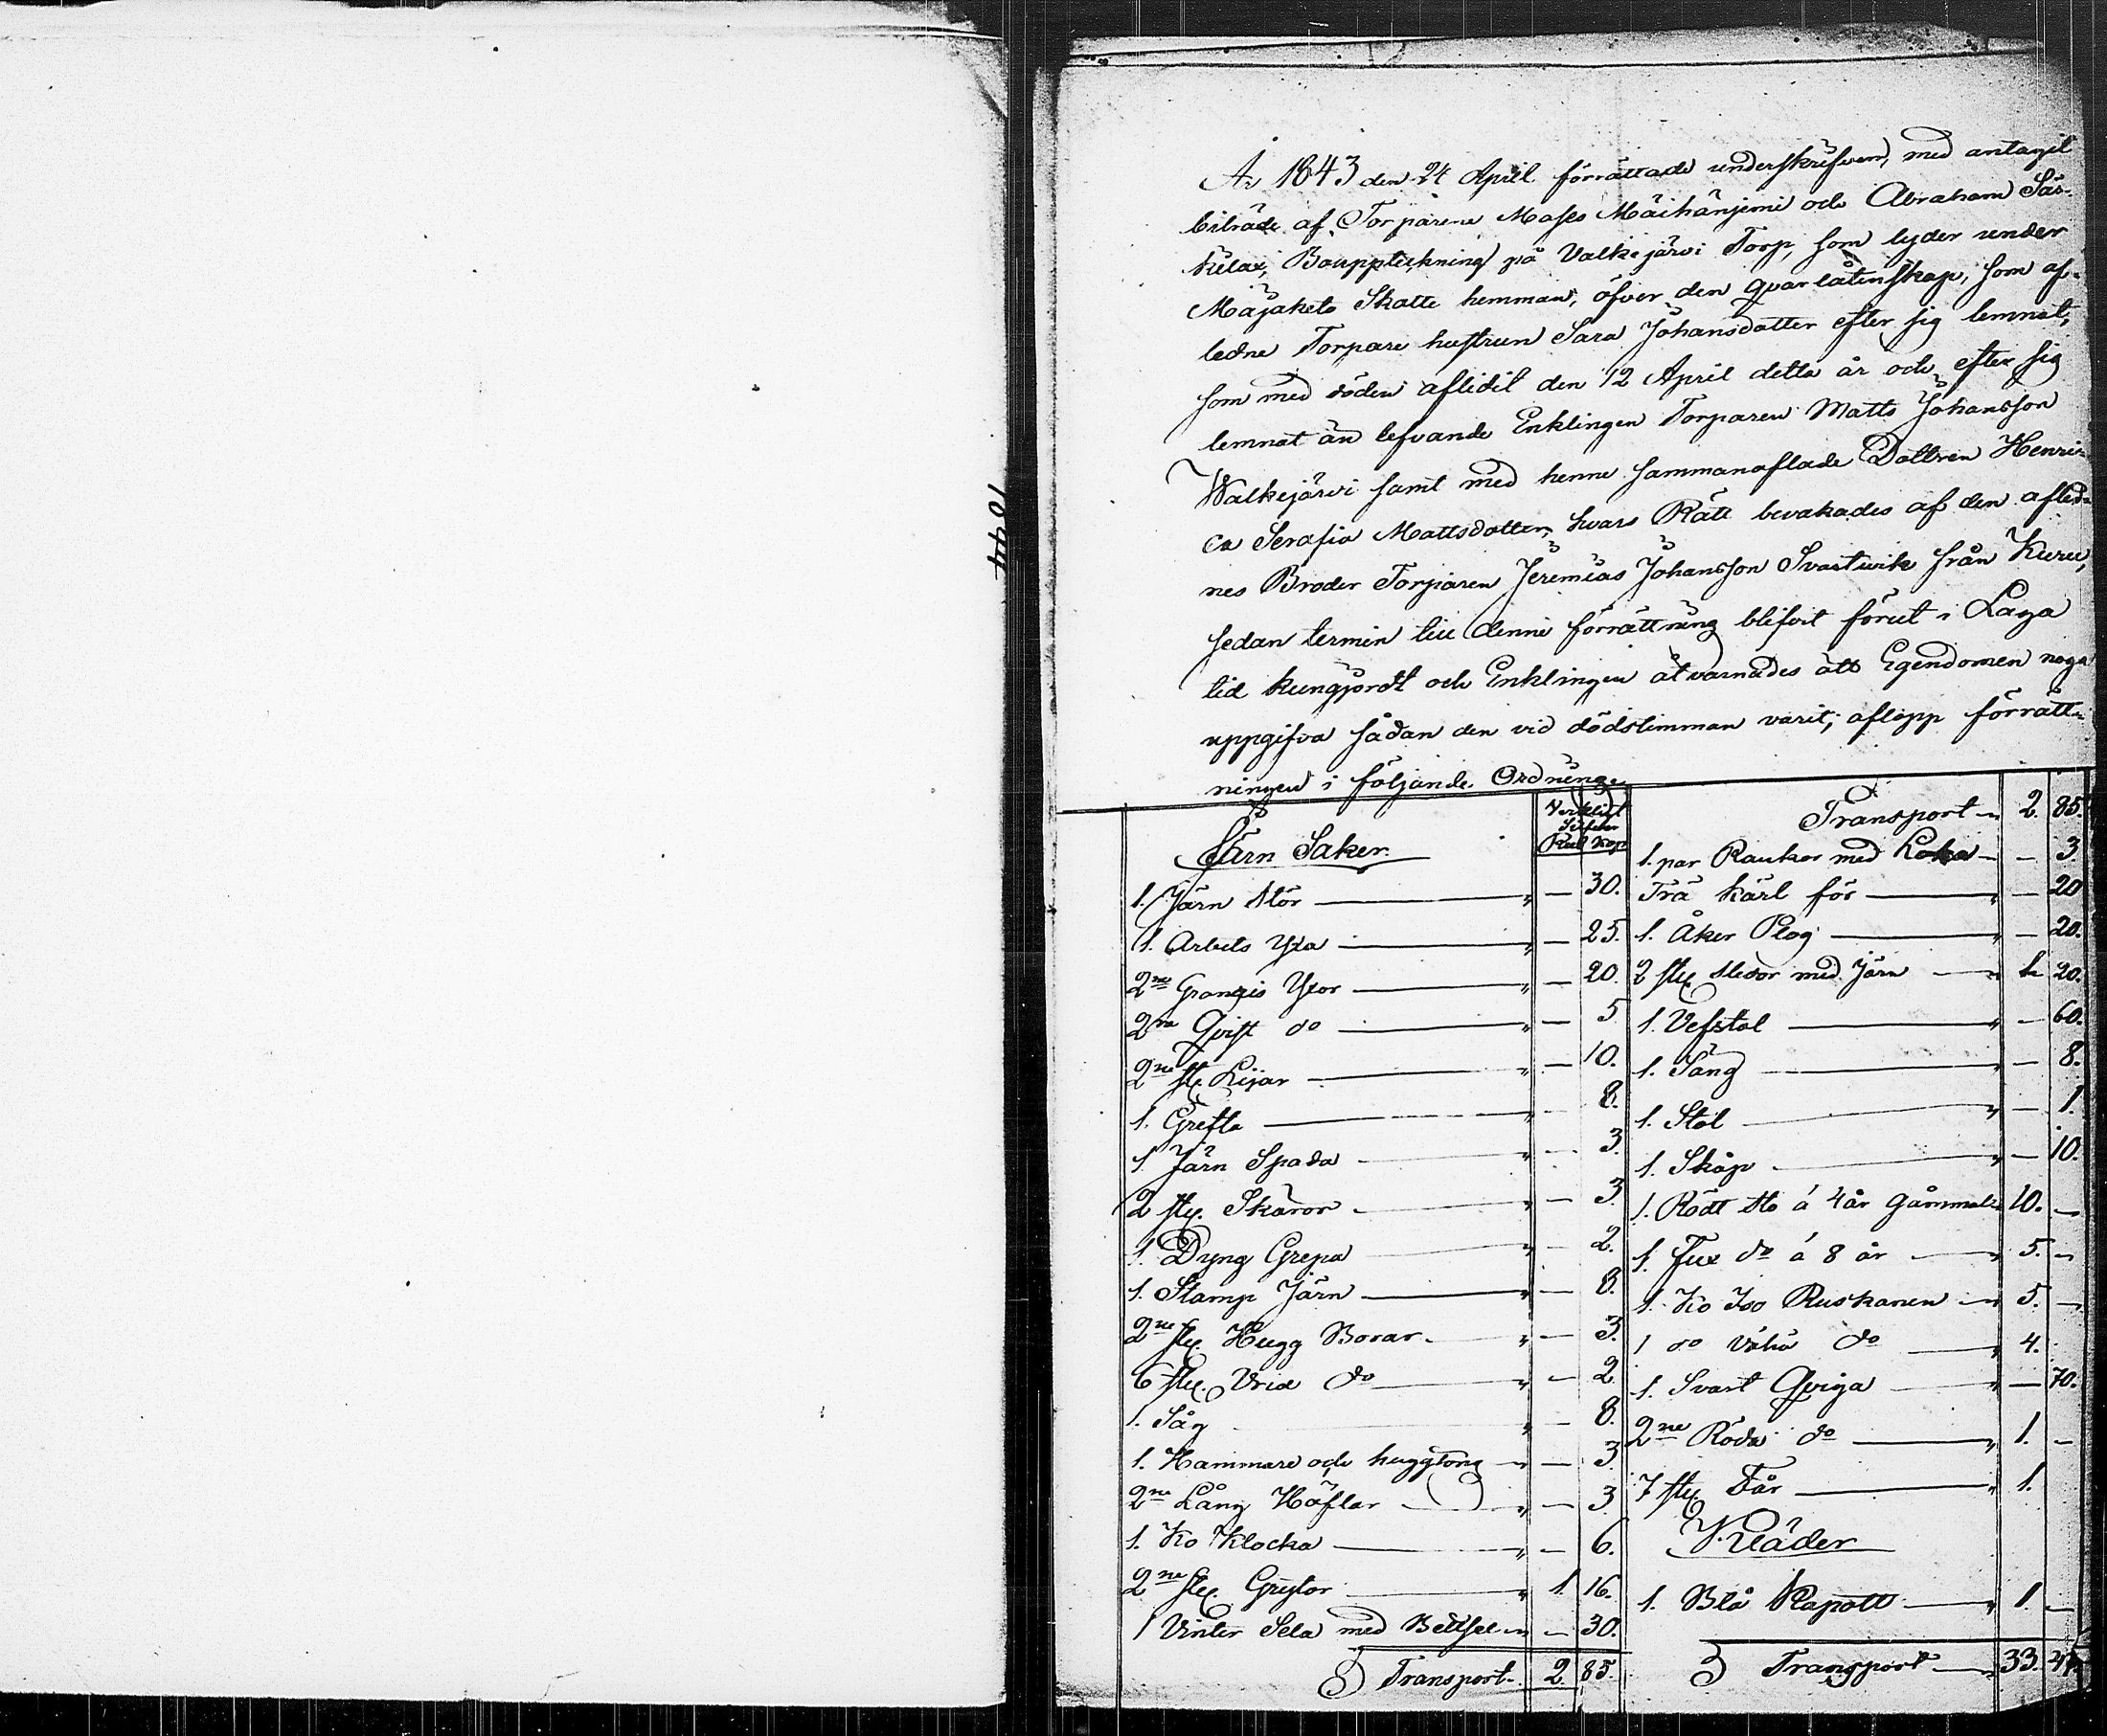 1044
År 1843 den 24 April förrättade underskrifven, med antagit
biträde af Torparene Mats Mäihäniemi och Abraham Sär-
kilax, Bouppteckning på Valkejärvi Torp, som lyder under
Majakets Skatte hemman, öfver den qvarlåtenskap, som af-
ledne Torpare hustrun Sara Johansdotter efter sig lemnat,
som med döden aflidit den 12 April detta år och efter sig
lemnat än lefvande Enklingen Torparen Matts Johansson
Walkejärvi samt med henne sammanaflade Dottren Henri-
ca Serafia Mattsdotter, hvars Rätt bevakades af den afled-
nes Broder Torparen Jeremias Johansson Svartvik från Kuru,
sedan termin till denne förrättning blifvit förut i Laga
tid kungjordt och Enklingen åtvarnades att Egendomen noga
uppgifva sådan den vid dödstimman varit; aflopp förrätt-
ningen i följande Ordning.
Verkligt
Silfver
Rub Kop
Järn Saker.
1. Järn Stör — 30.
1. Arbets Yxa — 25.
2ne Yxor — 20.
2ne Qvist do — 5
2ne st. Lijar — 10.
1. Grefta — 8.
1 Järn Spada — 3.
2 st. Skäror — 3.
1. Dyng Grepa — 2.
1. Stamp Järn — 8.
2ne st. Hugg Borar — 3.
6 st. Vrid do — 2
1. Såg — 8.
1. Hammare och huggtång — 3
2ne Lång Höflar — 3
1. Ko Klocka — 6.
2ne st. Grytor 1. 16.
1 Vinter Sela med Bettsel — 30.
Transport 2. 85.
Transport 2. 85.
1. par Rankor med Loka — 3.
Trä kärl för — 20
1. Åker Plog — 20.
2 st. slädor med Järn 1. 20.
1. Vefstol — 60.
1. Säng — 8.
1. Stol — 1.
1. Skåp — 10.
1. Rödt Sto á 4 år gammal 10. —
1. Fux do á 8 år 5. —
1. Ko Iso Ruskanen 5. —
1 do Vähä do 4.
1. Svart Qviga — 70.
2ne Röda do 1. —
7 st. Får 1.
Kläder
1. Blå Kapott 1. —
Transport 33. 47.